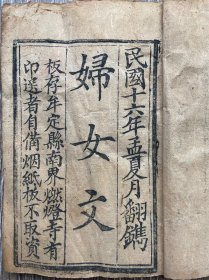 民國十六年孟夏月翻鐫
婦女文
板存牟定縣南界燃燈寺有
印送者自備烟紙板不取資